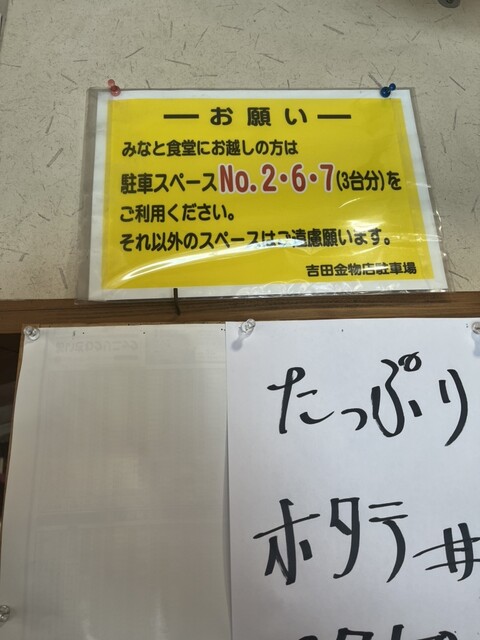 お願い
みなと食堂にお越しの方は
駐車スペースNo.2・6・7(3台分)を
ご利用ください。
それ以外のスペースはご遠慮願います。
吉田金物店駐車場
たっぷり
ホタテ